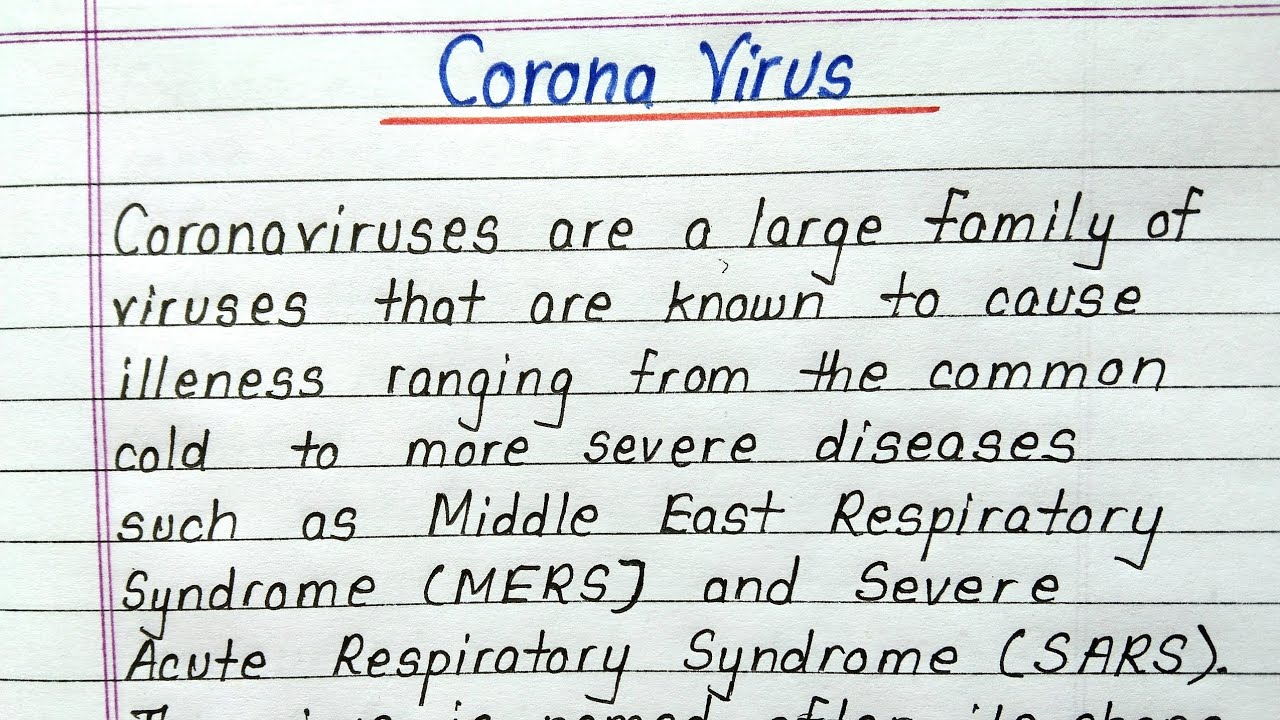 Corona Virus
Coronaviruses are a large family of
viruses that are known to cause
illeness ranging from the common
cold to more severe diseases
such as Middle East Respiratory
Syndrome (MERS] and Severe
Acute Respiratory Syndrome (SARS).
is named after its